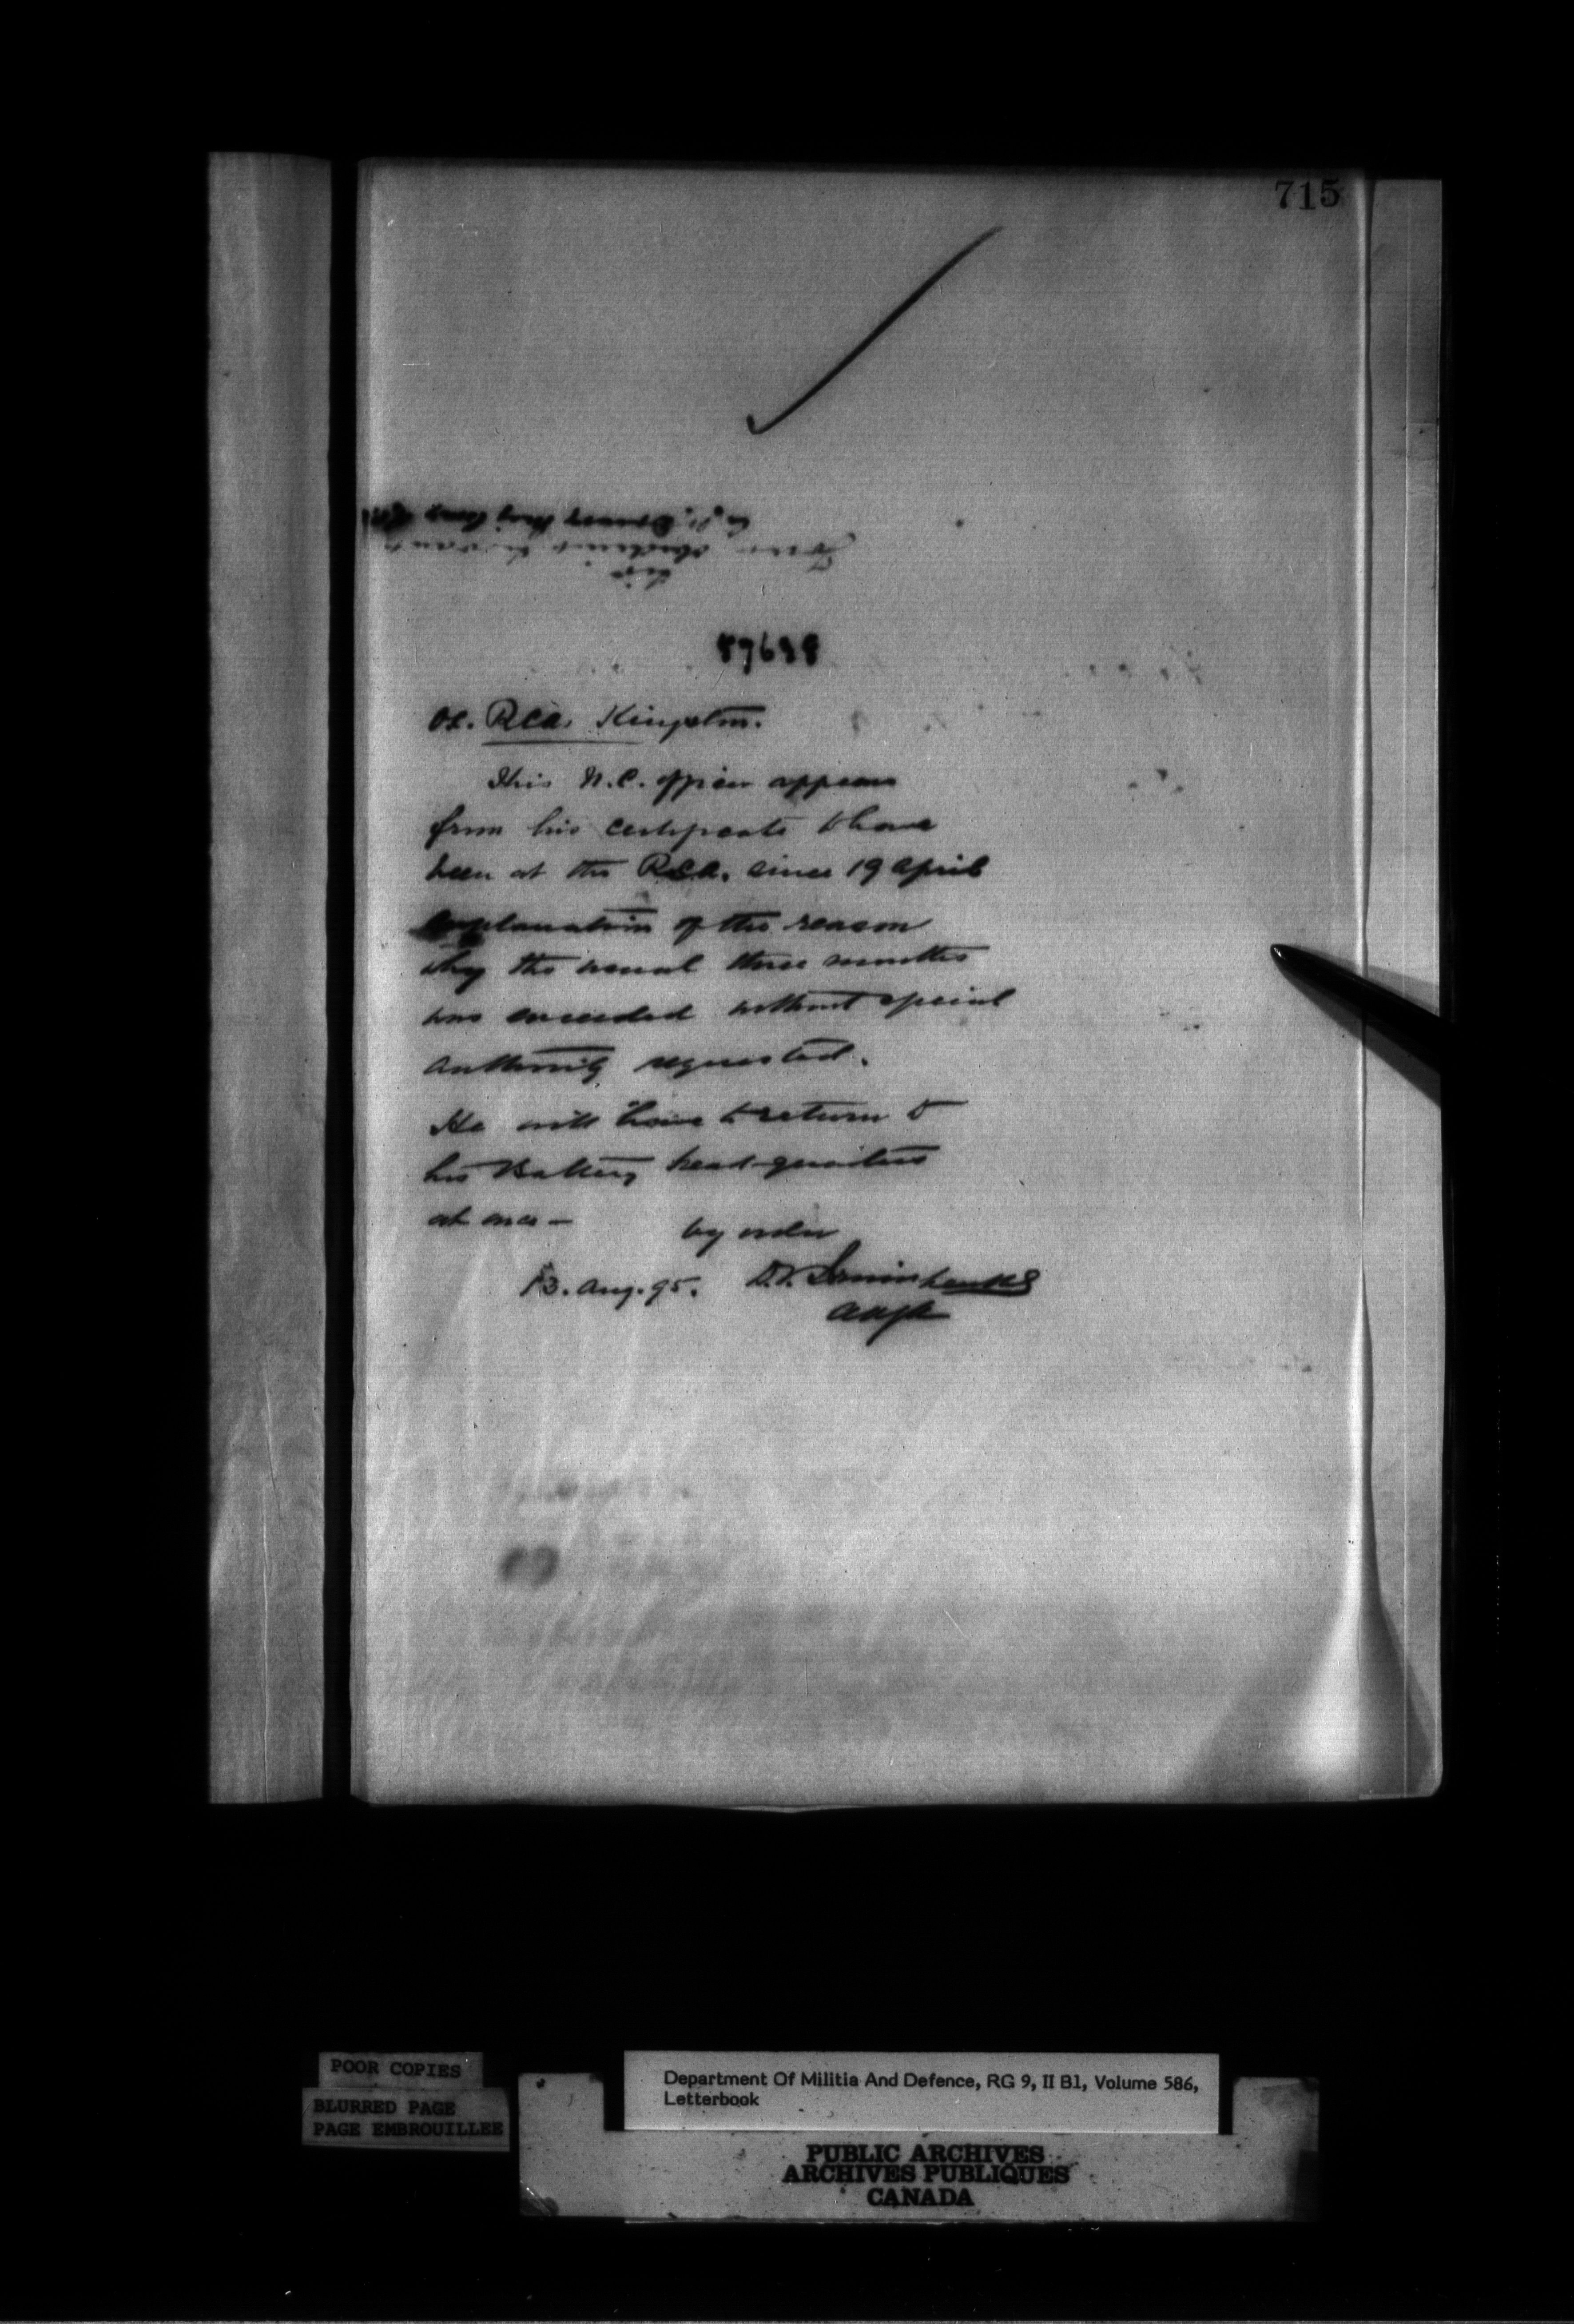 715
OC. RCA. Kingston.
This N.C. officer appears
from his certificate to have
been at the RCA. since 19 April
Explanation of the reason
why the usual three months
was exceeded without special
authority requested.
He will have to return to
his Battery head-quarters
at once —
by order
13. Aug. 95.
POOR COPIES
BLURRED PAGE
PAGE EMBROUILLEE
Department Of Militia And Defence, RG 9, II B1, Volume 586,
Letterbook
PUBLIC ARCHIVES
ARCHIVES PUBLIQUES
CANADA